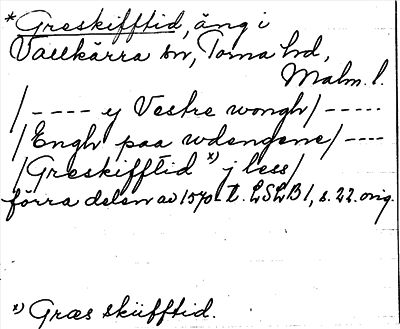 *Greskifftid, äng i
Vallkärra sn, Torna hd,
Malm. l.
/ - - - - ej Vestre wongh/ - - - - -
/Engh paa wdengene/ - - - -
/Greskifftid *) j less/
förra delen av 1570-t. LSLB I, s. 22. orig.
*) Græs skiifftid.